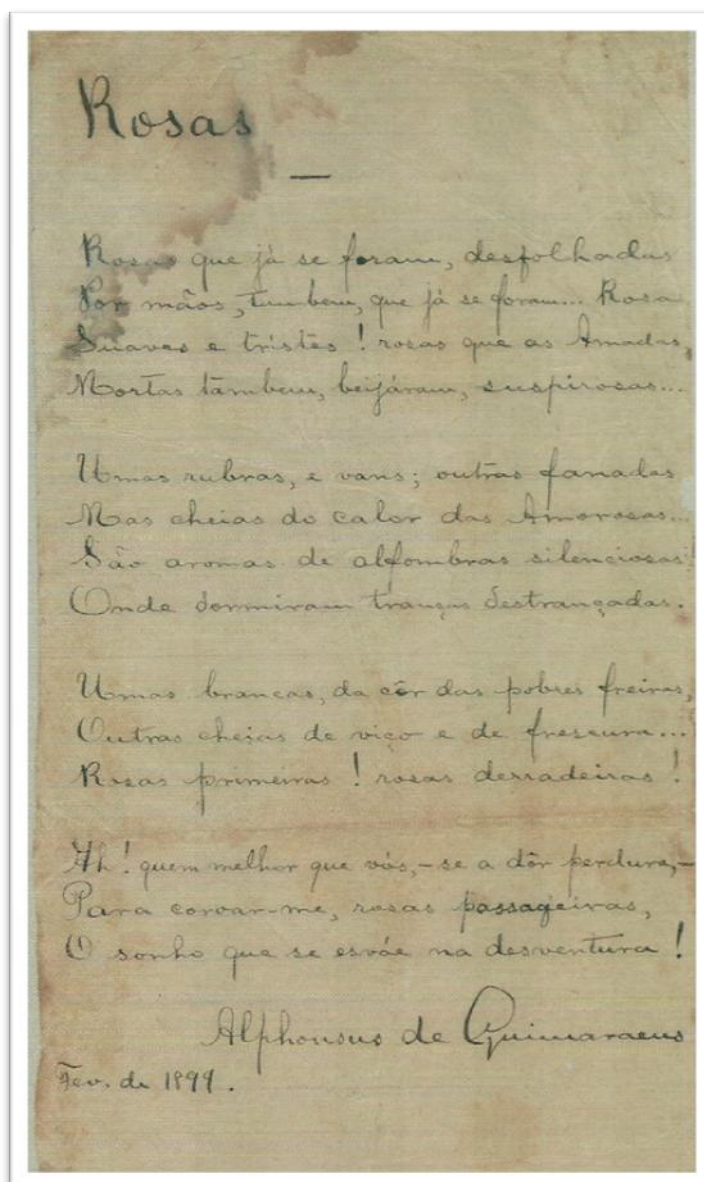 Rosas
—
Rosas que já se foram, desfolhadas
Por mãos, tambem, que já se foram... Rosa
Suaves e tristes! rosas que as Amadas,
Mortas tambem, beijáram, suspirosas...
Umas rubras, e vans; outras fanadas
Mas cheias do calor das Amorosas...
São aromas de alfombras silenciosas
Onde dormiram tranças destrançadas.
Umas brancas, da côr das pobres freiras,
Outras cheias de viço e de frescura...
Rosas primeiras! rosas derradeiras!
Ah! quem melhor que vós, – se a dôr perdura, –
Para coroar-me, rosas passageiras,
O sonho que se esváe na desventura!
Alphonsus de Guimaraens
Fev. de 1899.